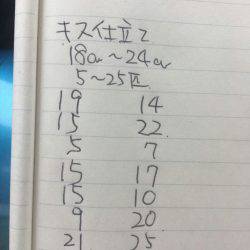 キス仕立て
18cm〜24cm
5〜25匹
19 14
15 22
5 7
15 17
15 10
9 20
21 25